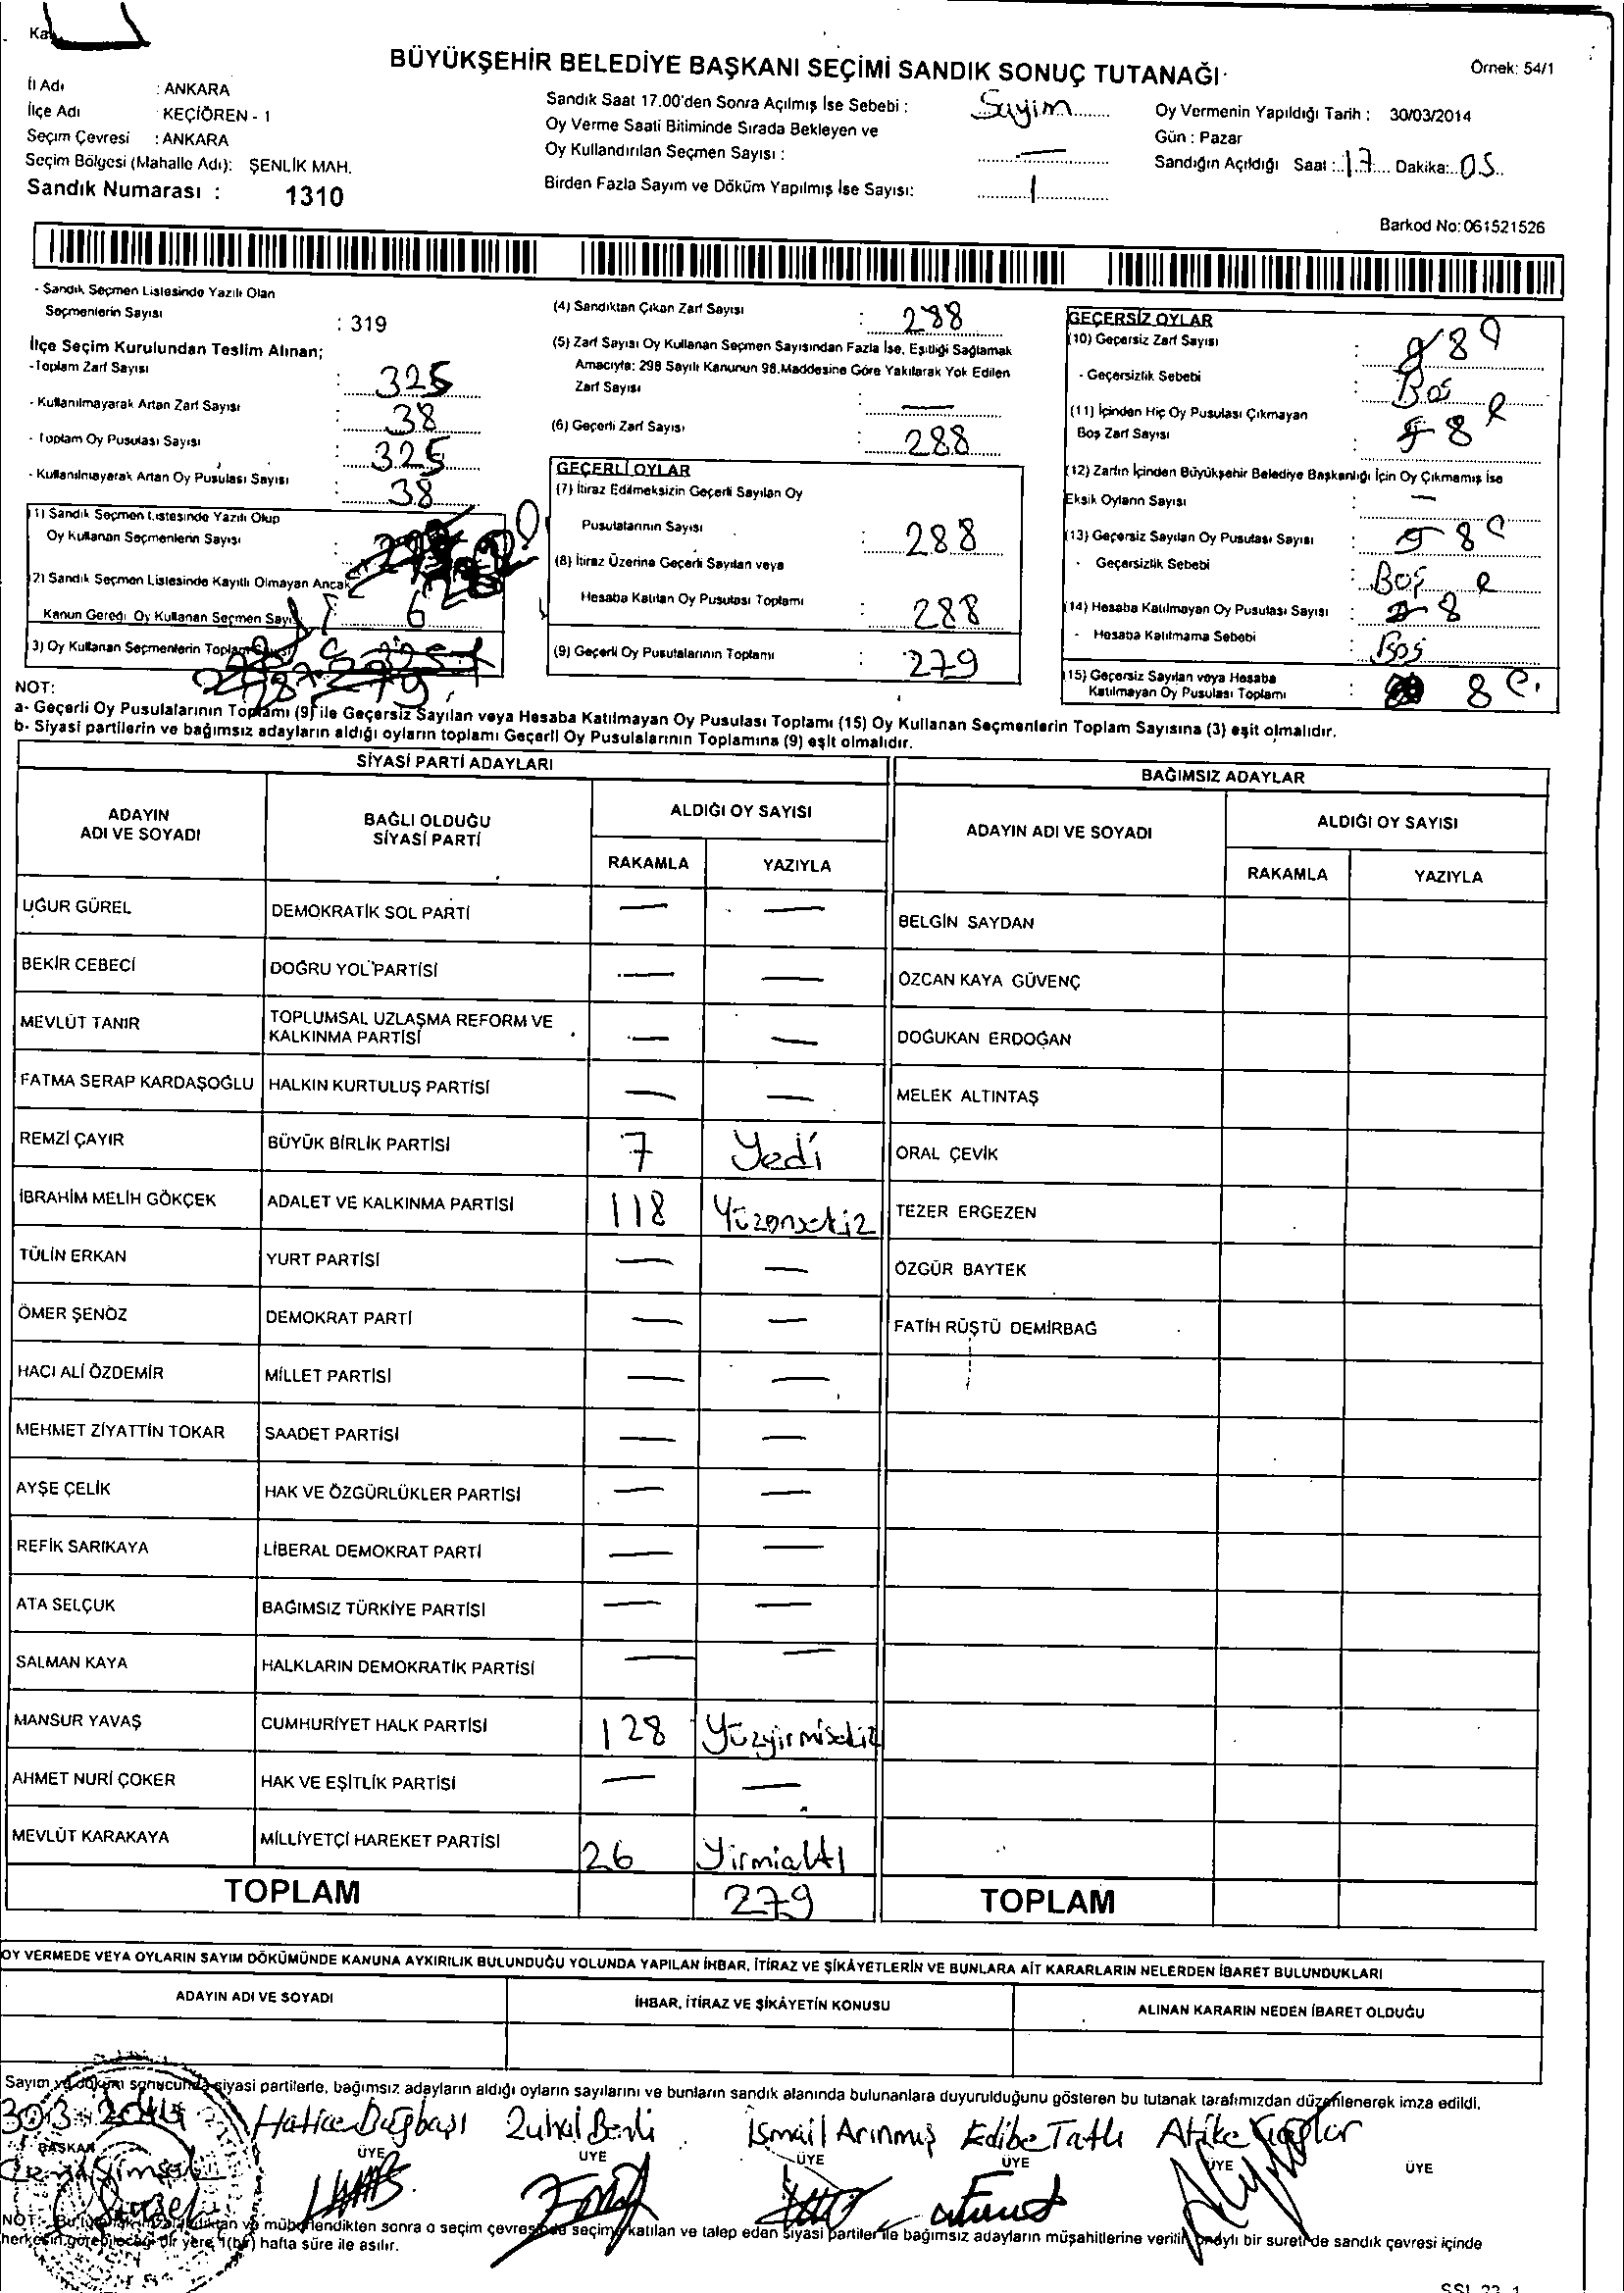 BÜYÜKŞEHİR BELEDİYE BAŞKANI SEÇİMİ SANDIK SONUÇ TUTANAĞI
Örnek: 54/1
İl Adı : ANKARA
İlçe Adı : KEÇİÖREN - 1
Seçim Çevresi : ANKARA
Seçim Bölgesi (Mahalle Adı): ŞENLİK MAH.
Sandık Numarası : 1310
Sandık Saat 17.00'den Sonra Açılmış İse Sebebi : Sayim
Oy Verme Saati Bitiminde Sırada Bekleyen ve
Oy Kullandırılan Seçmen Sayısı : —
Birden Fazla Sayım ve Döküm Yapılmış İse Sayısı: 1
Oy Vermenin Yapıldığı Tarih : 30/03/2014
Gün : Pazar
Sandığın Açıldığı Saat : 17 Dakika: 05
Barkod No: 061521526
- Sandık Seçmen Listesinde Yazılı Olan
Seçmenlerin Sayısı : 319
İlçe Seçim Kurulundan Teslim Alınan;
-Toplam Zarf Sayısı : 325
- Kullanılmayarak Artan Zarf Sayısı : 38
- Toplam Oy Pusulası Sayısı : 325
- Kullanılmayarak Artan Oy Pusulası Sayısı : 38
(1) Sandık Seçmen Listesinde Yazılı Olup
Oy Kullanan Seçmenlerin Sayısı :
(2) Sandık Seçmen Listesinde Kayıtlı Olmayan Ancak
Kanun Gereği Oy Kullanan Seçmen Sayısı 6
(3) Oy Kullanan Seçmenlerin Toplam Sayısı
(4) Sandıktan Çıkan Zarf Sayısı : 288
(5) Zarf Sayısı Oy Kullanan Seçmen Sayısından Fazla İse, Eşitliği Sağlamak
Amacıyla: 298 Sayılı Kanunun 98.Maddesine Göre Yakılarak Yok Edilen
Zarf Sayısı : —
(6) Geçerli Zarf Sayısı : 288
GEÇERLİ OYLAR
(7) İtiraz Edilmeksizin Geçerli Sayılan Oy
Pusulalarının Sayısı : 288
(8) İtiraz Üzerine Geçerli Sayılan veya
Hesaba Katılan Oy Pusulası Toplamı : 288
(9) Geçerli Oy Pusulalarının Toplamı : 279
GEÇERSİZ OYLAR
(10) Geçersiz Zarf Sayısı : 8
- Geçersizlik Sebebi : Boş
(11) İçinden Hiç Oy Pusulası Çıkmayan
Boş Zarf Sayısı : 8
(12) Zarfın İçinden Büyükşehir Belediye Başkanlığı İçin Oy Çıkmamış İse
Eksik Oyların Sayısı : —
(13) Geçersiz Sayılan Oy Pusulası Sayısı : 8
- Geçersizlik Sebebi : Boş
(14) Hesaba Katılmayan Oy Pusulası Sayısı : 8
- Hesaba Katılmama Sebebi : Boş
(15) Geçersiz Sayılan veya Hesaba
Katılmayan Oy Pusulası Toplamı : 8
NOT:
a- Geçerli Oy Pusulalarının Toplamı (9) ile Geçersiz Sayılan veya Hesaba Katılmayan Oy Pusulası Toplamı (15) Oy Kullanan Seçmenlerin Toplam Sayısına (3) eşit olmalıdır.
b- Siyasi partilerin ve bağımsız adayların aldığı oyların toplamı Geçerli Oy Pusulalarının Toplamına (9) eşit olmalıdır.
SİYASİ PARTİ ADAYLARI
ADAYIN ADI VE SOYADI BAĞLI OLDUĞU SİYASİ PARTİ ALDIĞI OY SAYISI
RAKAMLA YAZIYLA
UĞUR GÜREL DEMOKRATİK SOL PARTİ — —
BEKİR CEBECİ DOĞRU YOL PARTİSİ — —
MEVLÜT TANIR TOPLUMSAL UZLAŞMA REFORM VE KALKINMA PARTİSİ — —
FATMA SERAP KARDAŞOĞLU HALKIN KURTULUŞ PARTİSİ — —
REMZİ ÇAYIR BÜYÜK BİRLİK PARTİSİ 7 Yedi
İBRAHİM MELİH GÖKÇEK ADALET VE KALKINMA PARTİSİ 118 Yüzonsekiz
TÜLİN ERKAN YURT PARTİSİ — —
ÖMER ŞENÖZ DEMOKRAT PARTİ — —
HACI ALİ ÖZDEMİR MİLLET PARTİSİ — —
MEHMET ZİYATTİN TOKAR SAADET PARTİSİ — —
AYŞE ÇELİK HAK VE ÖZGÜRLÜKLER PARTİSİ — —
REFİK SARIKAYA LİBERAL DEMOKRAT PARTİ — —
ATA SELÇUK BAĞIMSIZ TÜRKİYE PARTİSİ — —
SALMAN KAYA HALKLARIN DEMOKRATİK PARTİSİ — —
MANSUR YAVAŞ CUMHURİYET HALK PARTİSİ 128 Yüzyirmisekiz
AHMET NURİ ÇOKER HAK VE EŞİTLİK PARTİSİ — —
MEVLÜT KARAKAYA MİLLİYETÇİ HAREKET PARTİSİ 26 Yirmialtı
TOPLAM 279
BAĞIMSIZ ADAYLAR
ADAYIN ADI VE SOYADI ALDIĞI OY SAYISI
RAKAMLA YAZIYLA
BELGİN SAYDAN
ÖZCAN KAYA GÜVENÇ
DOĞUKAN ERDOĞAN
MELEK ALTINTAŞ
ORAL ÇEVİK
TEZER ERGEZEN
ÖZGÜR BAYTEK
FATİH RÜŞTÜ DEMİRBAĞ
TOPLAM
OY VERMEDE VEYA OYLARIN SAYIM DÖKÜMÜNDE KANUNA AYKIRILIK BULUNDUĞU YOLUNDA YAPILAN İHBAR, İTİRAZ VE ŞİKÂYETLERİN VE BUNLARA AİT KARARLARIN NELERDEN İBARET BULUNDUKLARI
ADAYIN ADI VE SOYADI İHBAR, İTİRAZ VE ŞİKÂYETİN KONUSU ALINAN KARARIN NEDEN İBARET OLDUĞU
Sayım ve döküm sonucunda siyasi partilerle, bağımsız adayların aldığı oyların sayılarını ve bunların sandık alanında bulunanlara duyurulduğunu gösteren bu tutanak tarafımızdan düzenlenerek imza edildi.
Hatice Dağbaşı Zuhal Benli İsmail Arınmış Edibe Tatlı Atike
BAŞKAN ÜYE ÜYE ÜYE ÜYE ÜYE ÜYE
NOT:- Bu tutanak imzalandıktan ve mühürlendikten sonra o seçim çevresinde seçime katılan ve talep eden siyasi partiler ile bağımsız adayların müşahitlerine verilir, onaylı bir sureti de sandık çevresi içinde
herkesin görebileceği bir yere 1(bir) hafta süre ile asılır.